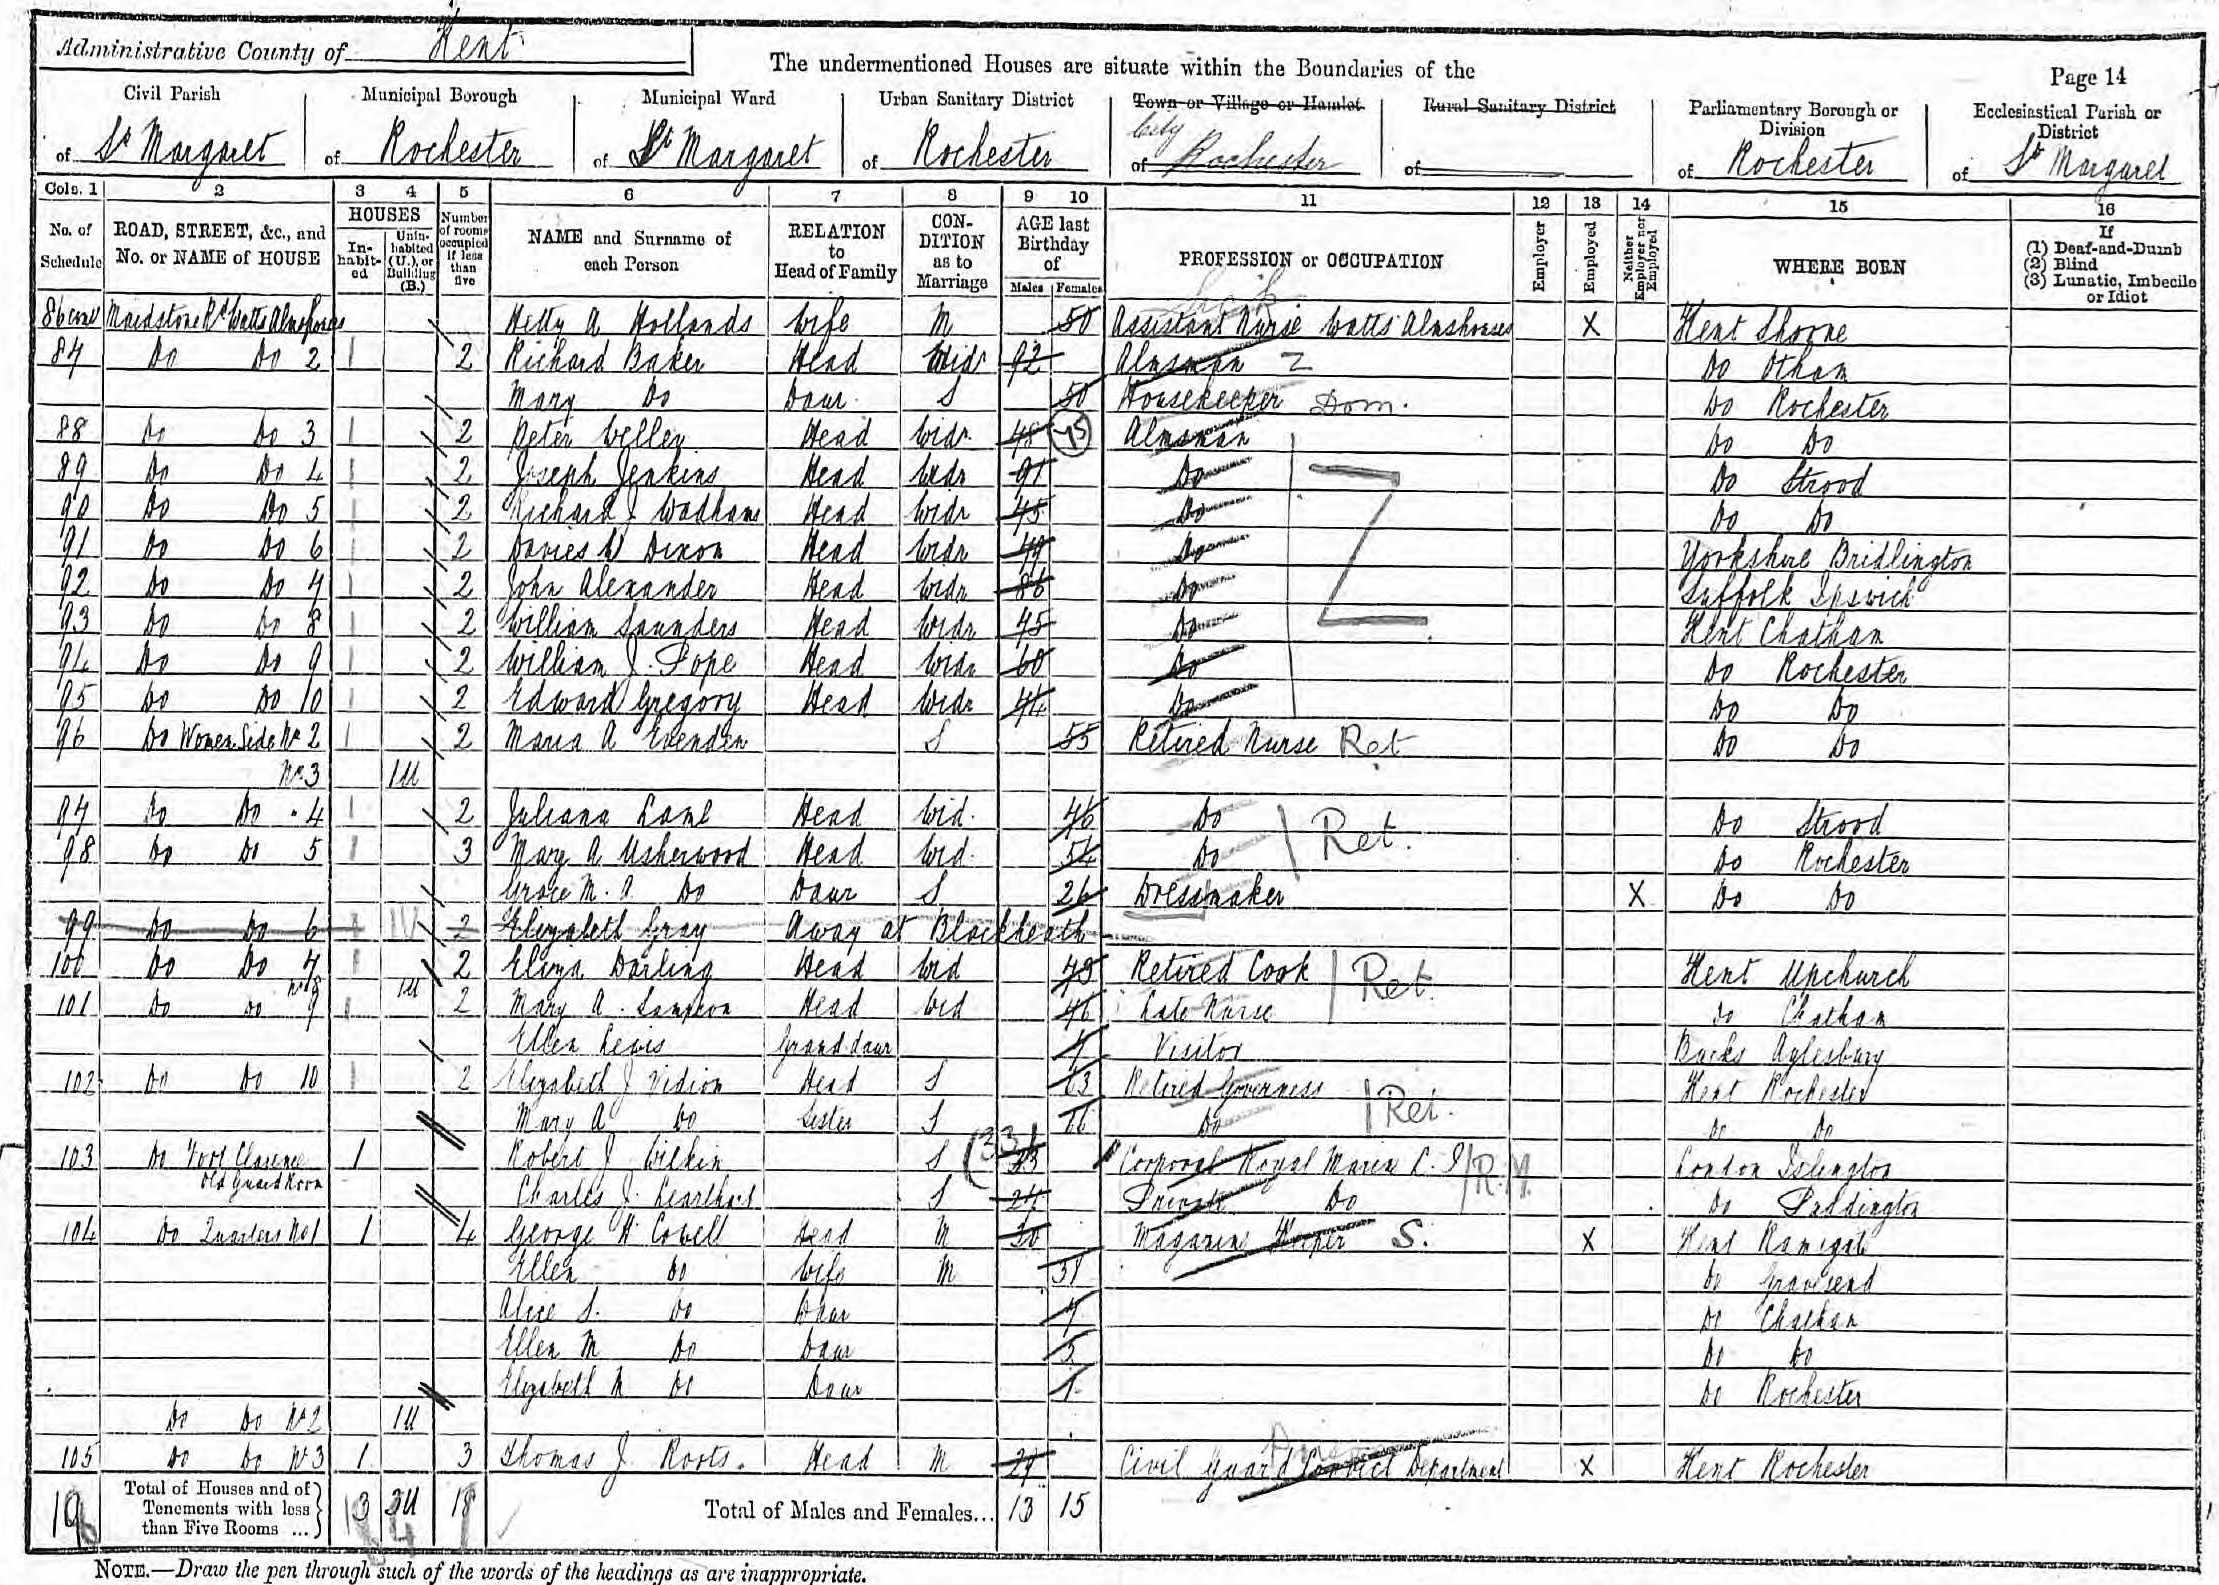 Administrative County of Kent
The undermentioned Houses are situate within the Boundaries of the
Page 14
Civil Parish of St Margaret
Municipal Borough of Rochester
Municipal Ward of St Margaret
Urban Sanitary District of Rochester
Town or Village or Hamlet City of Rochester
Rural Sanitary District of
Parliamentary Borough or Division of Rochester
Ecclesiastical Parish or District of St Margaret
Cols. 1 2 3 4 5 6 7 8 9 10 11 12 13 14 15 16
No. of Schedule
ROAD, STREET, &c., and No. or NAME of HOUSE
HOUSES
In-habit-ed
Unin-habited (U.), or Building (B.)
Number of rooms occupied if less than five
NAME and Surname of each Person
RELATION to Head of Family
CON-DITION as to Marriage
AGE last Birthday of
Males Females
PROFESSION or OCCUPATION
Employer
Employed
Neither Employer nor Employed
WHERE BORN
If
(1) Deaf-and-Dumb
(2) Blind
(3) Lunatic, Imbecile or Idiot
86 Maidstone Rd Watts Almshouses Hetty A Hollands Wife M 50 Assistant Nurse Watts Almshouses X Kent Shorne
87 Do Do 2 1 2 Richard Baker Head Widr 72 Almsman Do Otham
Mary Do Daur S 50 Housekeeper Dom. Do Rochester
88 Do Do 3 1 2 Peter Head Widr 75 Almsman Do Do
89 Do Do 4 1 2 Joseph Jenkins Head Widr 71 Do Do Strood
90 Do Do 5 1 2 Richard J Wadhams Head Widr 75 Do Do Do
91 Do Do 6 1 2 Davies W Dixon Head Widr 79 Do Yorkshire Bridlington
92 Do Do 7 1 2 John Alexander Head Widr 86 Do Suffolk Ipswich
93 Do Do 8 1 2 William Saunders Head Widr 75 Do Kent Chatham
94 Do Do 9 1 2 William J. Pope Head Widr 60 Do Do Rochester
95 Do Do 10 1 2 Edward Gregory Head Widr 74 Do Do Do
96 Do Women Side No 2 1 2 Maria A Evenden S 55 Retired Nurse Ret Do Do
No 3 1U
97 Do Do 4 1 2 Juliana Lamb Head Wid. 76 Do Ret. Do Strood
98 Do Do 5 1 3 Mary A Usherwood Head Wid. 54 Do Do Rochester
Grace M. A. Do Daur S 26 Dressmaker X Do Do
99 Do Do 6 1 2 Elizabeth Gray Away at Blackheath
100 Do Do 7 1 2 Eliza Darling Head Wid 73 Retired Cook Ret. Kent Upchurch
No 8 1U
101 Do Do 9 1 2 Mary A. Sampson Head Wid 76 Late Nurse Do Chatham
Ellen Lewis Grand daur 7 Visitor Bucks Aylesbury
102 Do Do 10 1 2 Elizabeth J Vidion Head S 63 Retired Governess Ret. Kent Rochester
Mary A Do Sister S 66 Do Do Do
103 Do Fort Clarence Old Guard Room 1 Robert J Wilkin S (33) 23 Corporal Royal Marine L. I R.M. London Islington
Charles J. S 24 Private Do Do Paddington
104 Do Quarters No 1 1 4 George H Cowell Head M 30 Magazine Keeper S. X Kent Ramsgate
Ellen Do Wife M 31 Do Gravesend
Alice S. Do Daur 7 Do Chatham
Ellen M Do Daur 3 Do Do
Elizabeth M Do Daur 1 Do Rochester
Do Do No 2 1U
105 Do Do No 3 1 3 Thomas J Roots. Head M 29 Civil Guard Convict Department X Kent Rochester
19 Total of Houses and of Tenements with less than Five Rooms ... 3U 18 Total of Males and Females... 13 15
NOTE.—Draw the pen through such of the words of the headings as are inappropriate.